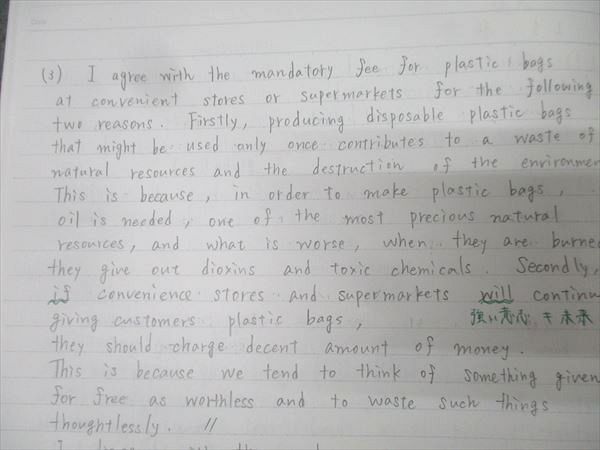 (3) I agree with the mandatory fee for plastic bags
at convenient stores or supermarkets for the following
two reasons. Firstly, producing disposable plastic bags
that might be used only once contributes to a waste of
natural resources and the destruction of the environmen
This is because, in order to make plastic bags,
oil is needed, one of the most precious natural
resources, and what is worse, when they are burned
they give out dioxins and toxic chemicals. Secondly,
if convenience stores and supermarkets will continu
giving customers plastic bags, 強い意志 ≠ 未来
they should charge decent amount of money.
This is because we tend to think of something given
for free as worthless and to waste such things
thoughtlessly. //